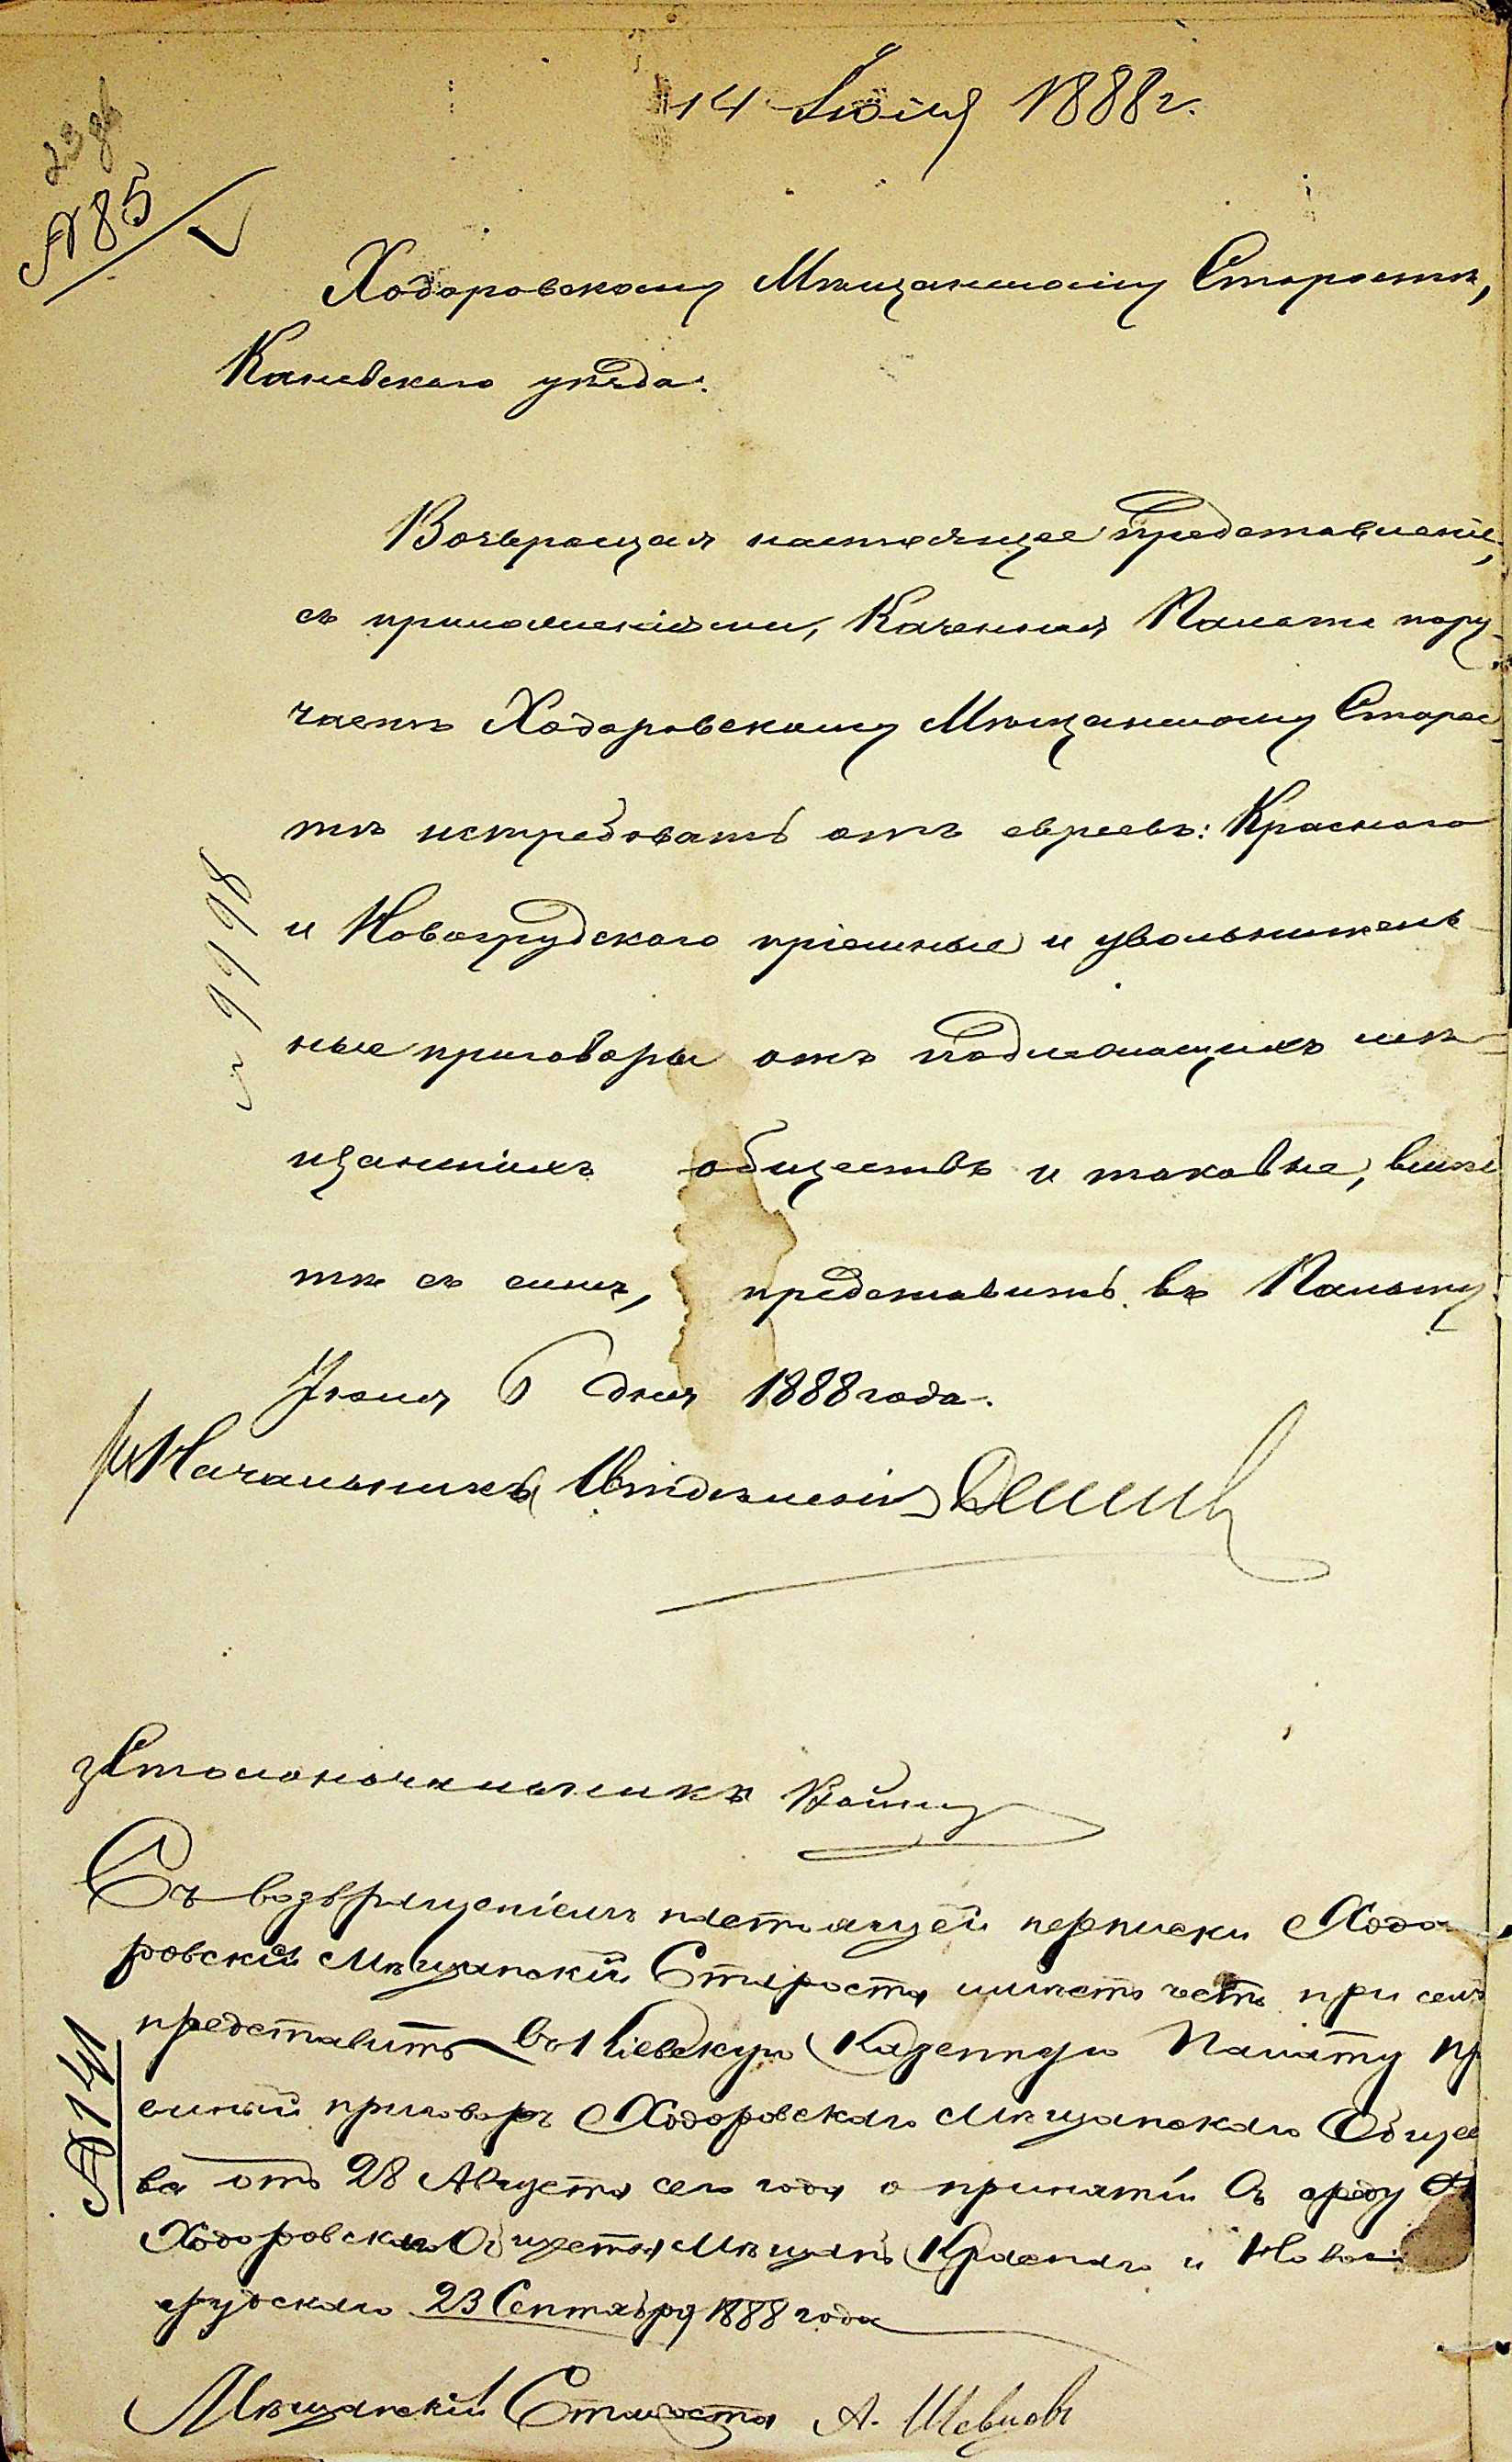 14 Іюля 1888 г.
№ 85
Ходоровскому Мѣщанскому Старостѣ,
Каневскаго уѣзда.
Возвращая настоящее представленіе,
съ приложеніями, Казенная Палата пору-
чаетъ Ходоровскому Мѣщанскому Старос-
тѣ истребовать отъ евреевъ: Краснаго
и Новогрудскаго пріемные и увольнитель-
ные приговоры отъ подлежащихъ мѣ-
щанскихъ обществъ и таковые, вмѣс
тѣ съ симъ, представить въ Палату.
Іюня 6 дня 1888 года.
Начальникъ Отдѣленія
Столоначальникъ
Съ возвращеніемъ настоящей переписки Ходо
ровскій Мѣщанскій Староста имѣетъ честь при семъ
представить въ Кіевскую Казенную Палату пр
емный приговоръ Ходоровскаго Мѣщанскаго Обще
ва отъ 28 Августа сего года о принятіи въ среду
Ходоровскаго Общества Мѣщанъ Краснаго и Ново
грудскаго 23 Сентября 1888 года
Мѣщанскій Староста А. Шевцовъ
№ 141